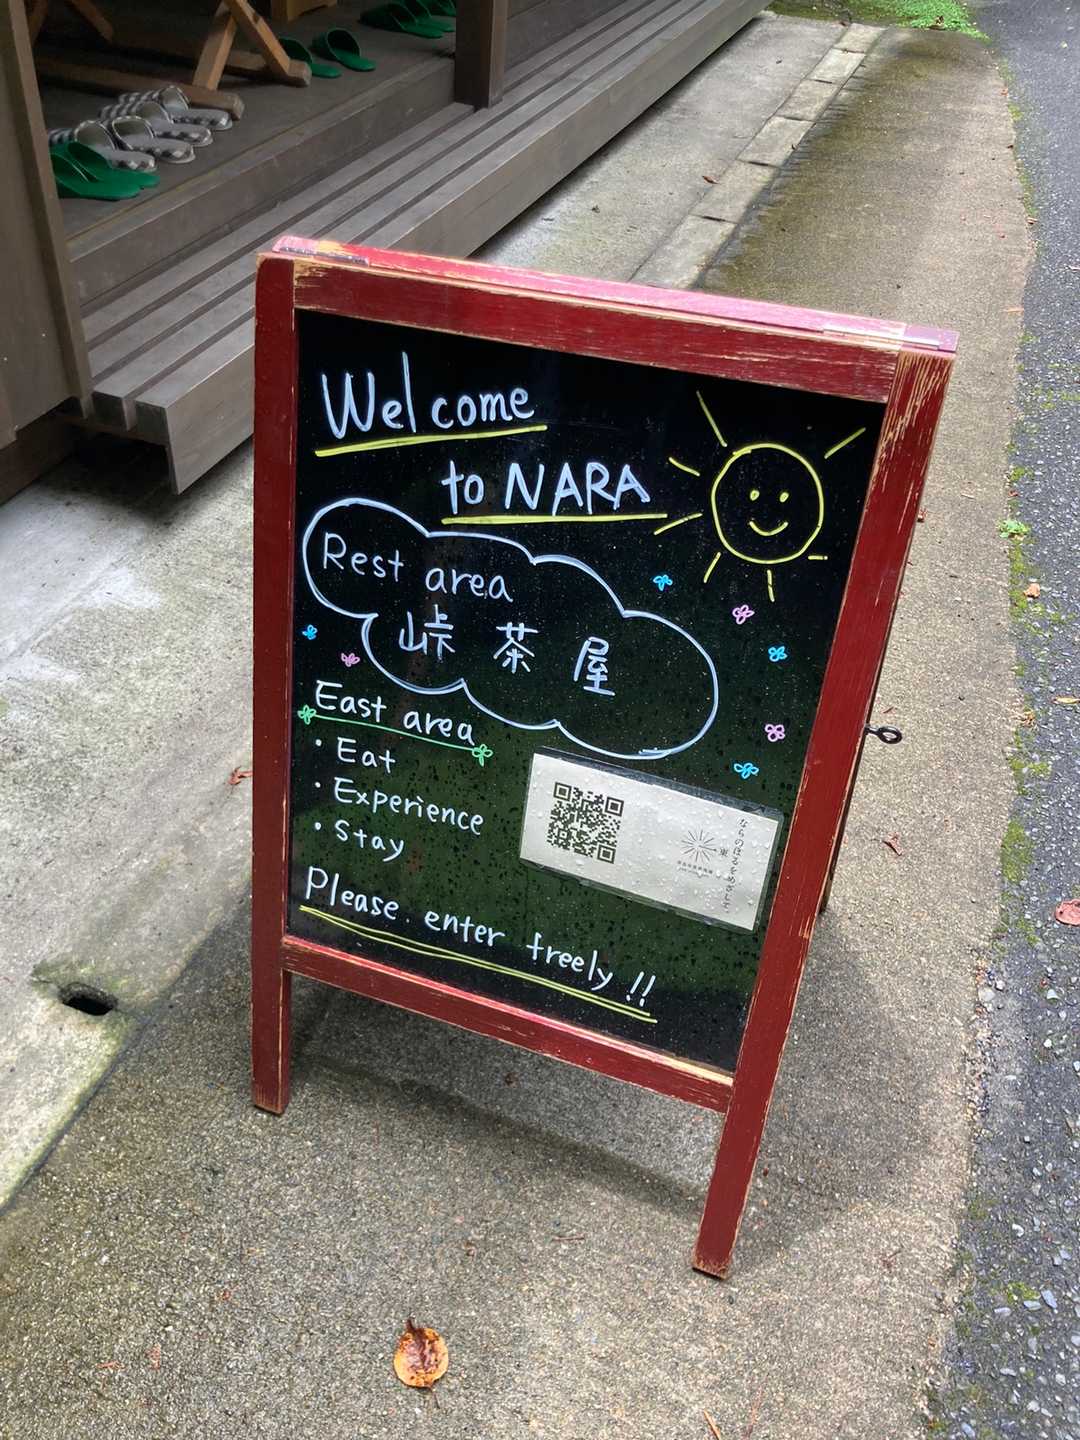 Welcome
to NARA
Rest area
峠茶屋
East area
・Eat
・Experience
・Stay
ならのはるをめざして
東
Please enter freely!!